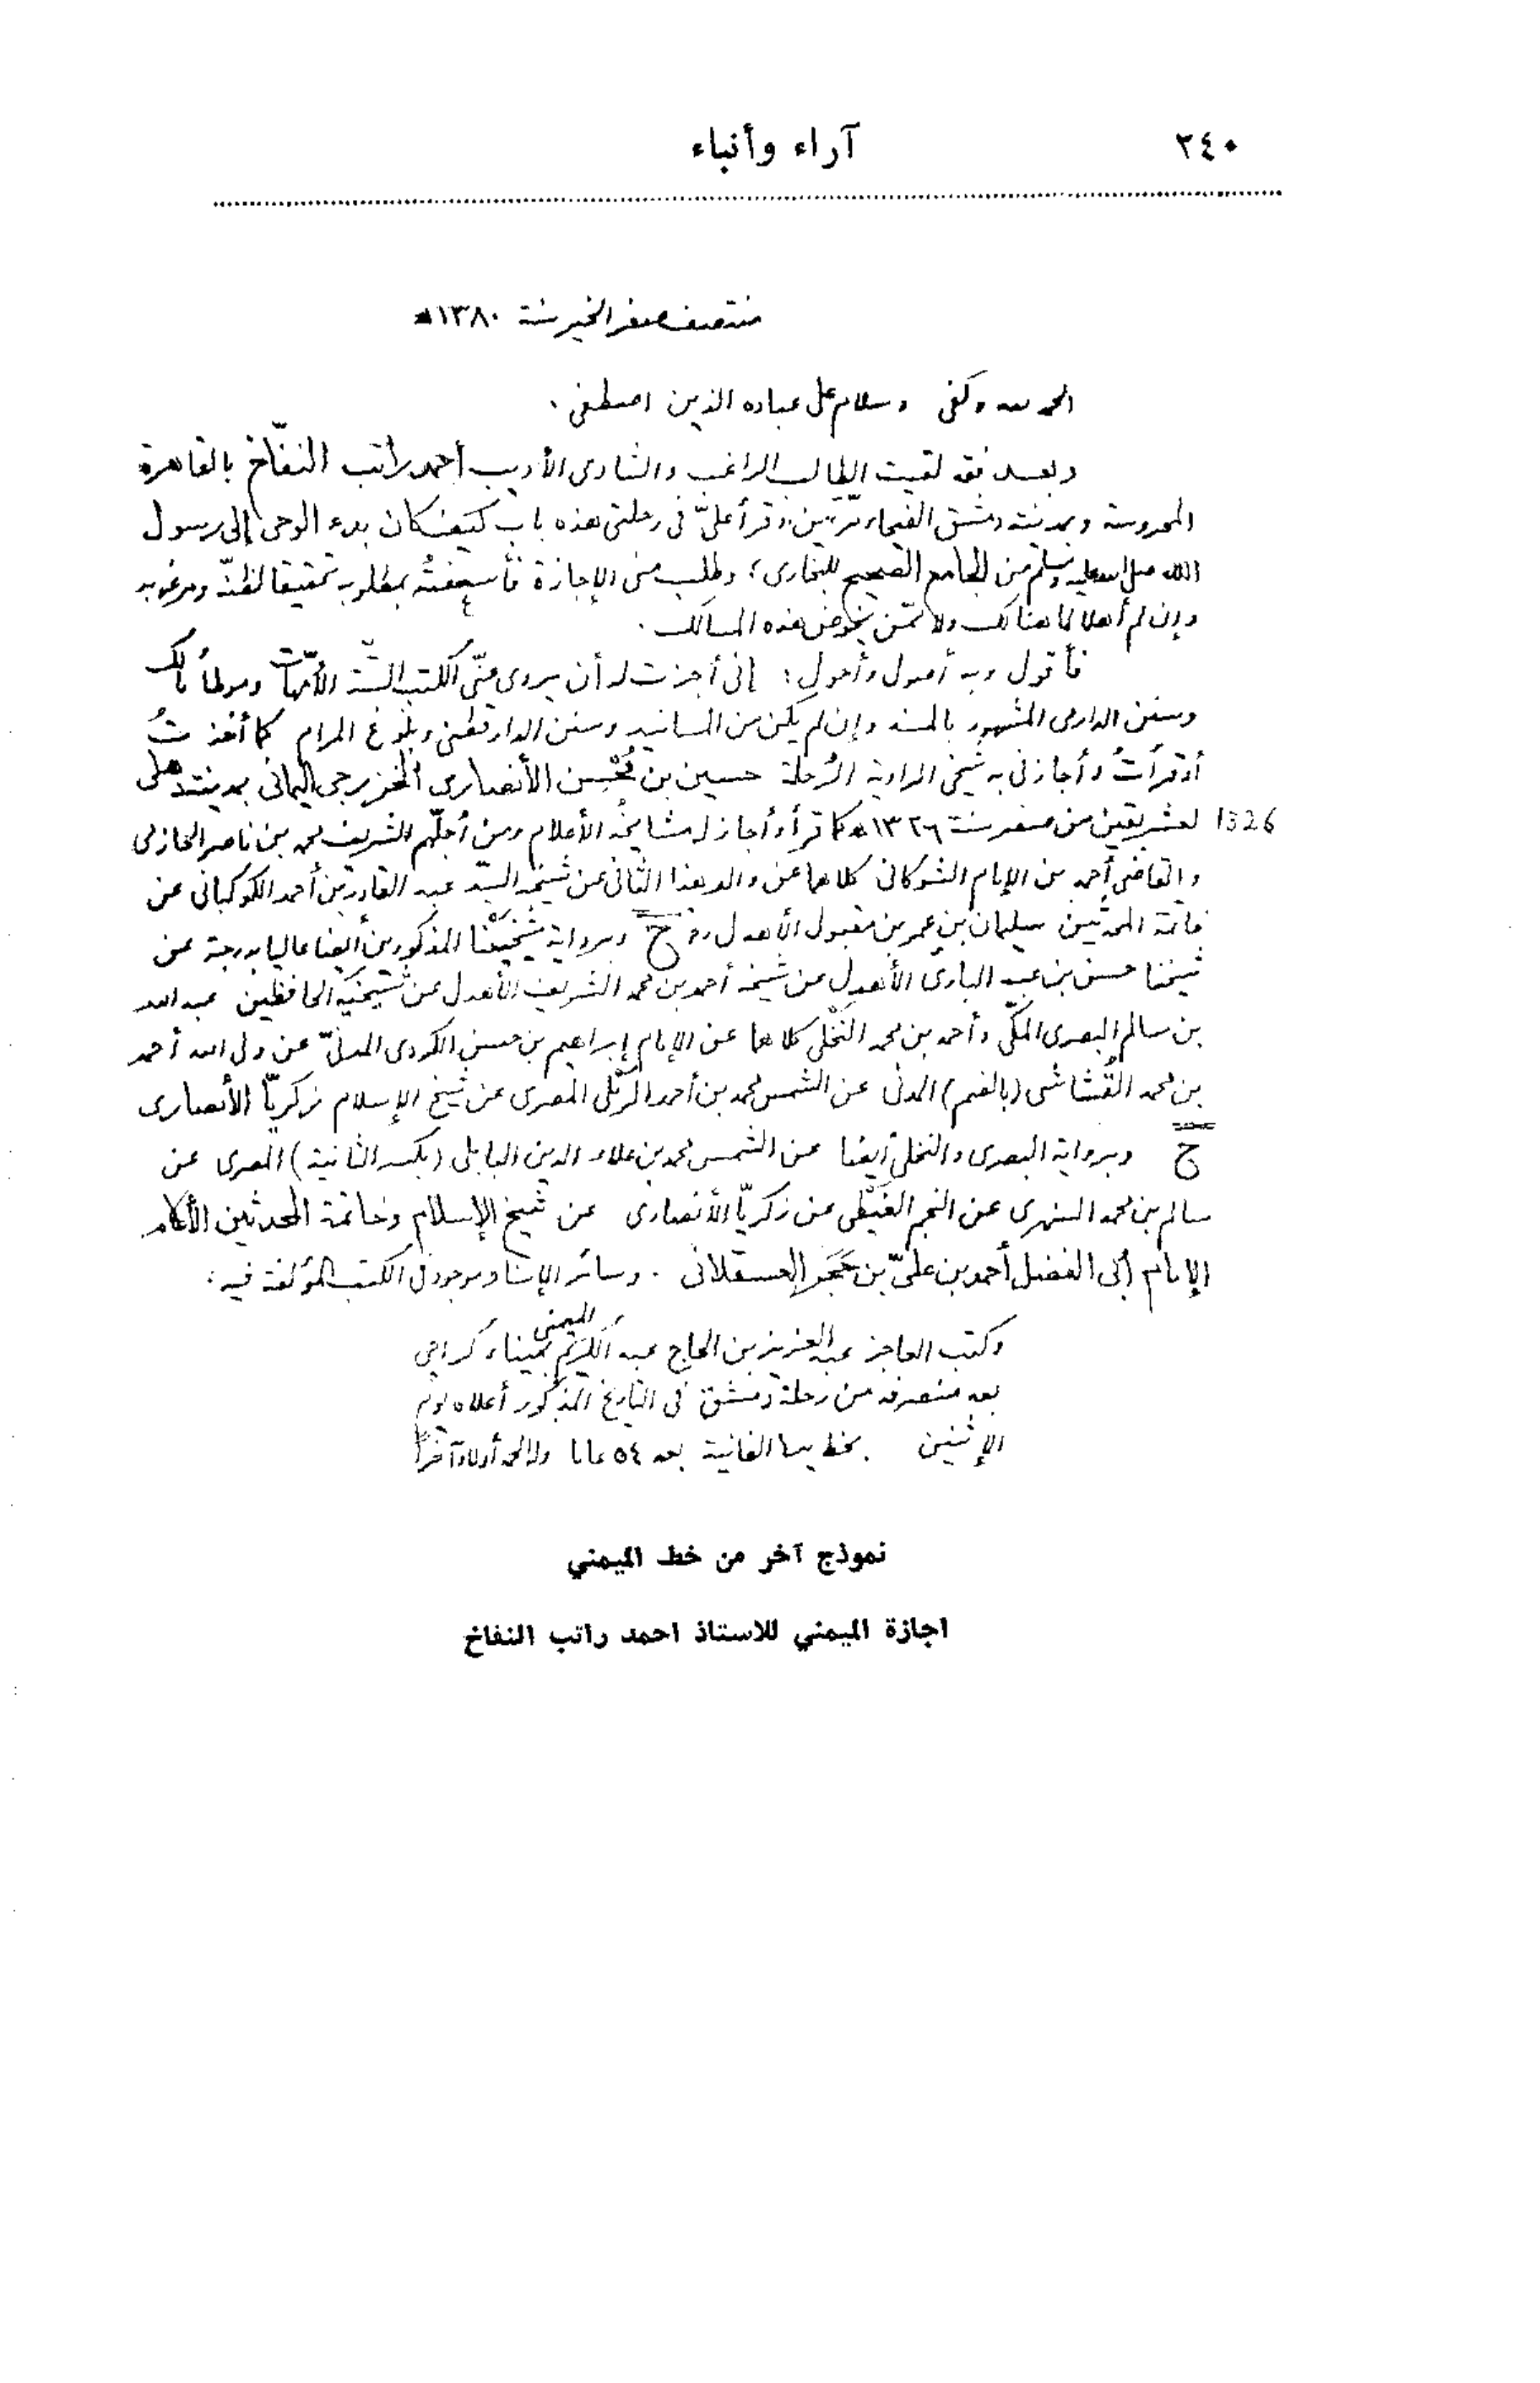 ٢٤٠
آراء وأنباء
منتصف صفر الخير سنة ١٣٨٠هـ
الحمد لله وكفى وسلام على عباده الذين اصطفى .
وبعد فقد لقيت الطالب الراغب والشادى الأديب أحمد راتب النفّاخ بالقاهرة
المحروسة وبمدينة دمشق الفيحاء مرّتين، وقرأ علىّ فى رحلتى هذه باب كيف كان بدء الوحى إلى رسول
الله صلى الله عليه وسلّم من الجامع الصحيح للبخارى؛ وطلب منى الإجازة فأسعفتُه بمطلوبه تحقيقا لظنّه ومرغوبه
وإن لم أهلا لما هنالك ولا ممّن يخوض هذه المسالك .
فأقول وبه أصول وأحول: إنى أجزت له أن يروى عنّى الكتب الستّة الأمّهات وموطأ مالك
وسنن الدارمى المشهور بالمسند وإن لم يكن من المسانيد وسنن الدارقطنى وبلوغ المرام كما أخذتُ
أو قرأتُ وأجازنى به شيخى الراوية الرُحلة حسين بن مُحْسِن الأنصارى الخزرجى اليمانى بمدينة دهلى
1326 لعشر بقين من صفر سنة ١٣٢٦هـ كما قرأ وأجاز له مشايخه الأعلام ومن أجلّهم الشريف محمد بن ناصر الحازمى
والقاضى أحمد بن الإمام الشوكانى كلاهما عن والد هذا الثانى عن شيخه السيّد عبد القادر بن أحمد الكوكبانى عن
خاتمة المحدثين سليمان بن عمر بن مقبول الأهدل ح وبرواية شَيْخَيْنا المذكورين أيضا عاليا بدرجة عن
شيخنا حسن بن عبد البارى الأهدل عن شيخه أحمد بن محمد الشريف الأهدل عن شيخَيْه الحافظين عبد الله
بن سالم البصرى المكّى وأحمد بن محمد النَخْلى كلاهما عن الإمام إبراهيم بن حسن الكردى المدنىّ عن ولى الله أحمد
بن محمد القُشاشى (بالضم) المدنى عن الشمس محمد بن أحمد الرَّملى المصرى عن شيخ الإسلام زكريّا الأنصارى
ح وبرواية البصرى والنخلى أيضا عن الشمس محمد بن علاء الدين البابلى (بكسر الثانية) المصرى عن
سالم بن محمد السنهورى عن النجم الغَيْطى عن زكريّا الأنصارى عن شيخ الإسلام وخاتمة المحدثين الأعلام
الإمام أبى الفضل أحمد بن علىّ بن حَجَر العسقلانى . وسائر الإسناد موجود فى الكتب المؤلفة فيه،
وكتب العاجز عبد العزيز بن الحاج عبد الكريم الميمنى بميناء كراچى
بعد منصرفه من رحلة دمشق فى التاريخ المذكور أعلاه يوم
الإثنين بخط يده الفانية بعد ٥٤ عاما والحمد لله أولا وآخرًا
نموذج آخر من خط الميمني
اجازة الميمني للاستاذ احمد راتب النفاخ